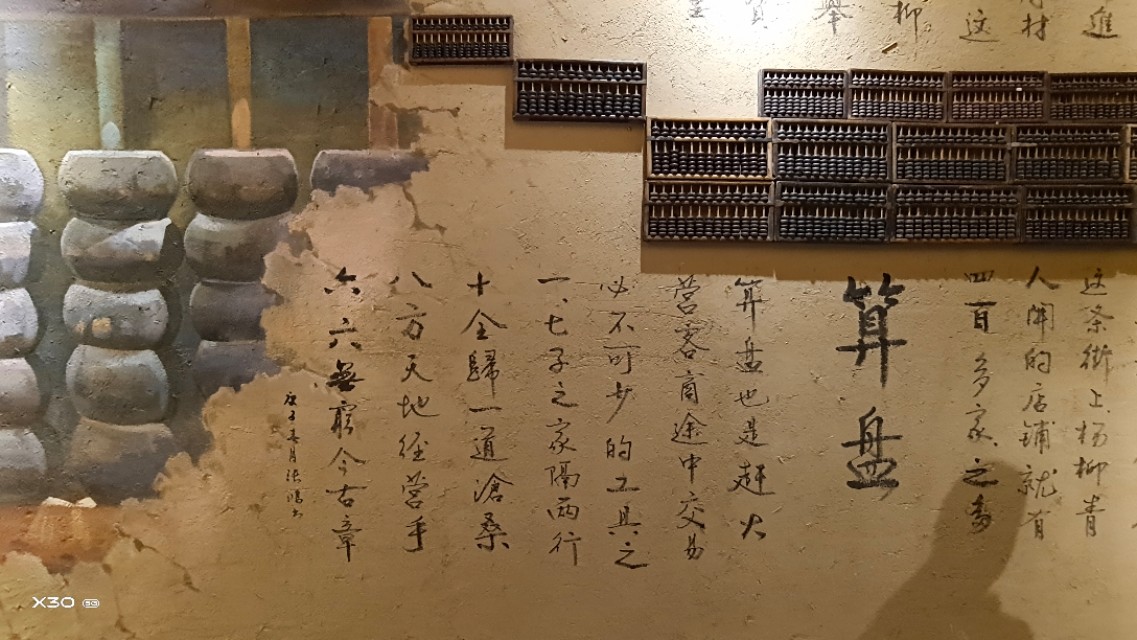 進
材
这
柳
舉
这条街上杨柳青
人開的店铺就有
四百多家之多
算盘
算盘也是赶大
营客商途中交易
必不可少的工具之
一、七子之家隔两行
十全歸一道滄桑
八方天地经营手
六六無窮今古章
庚子春月张
X30 5G